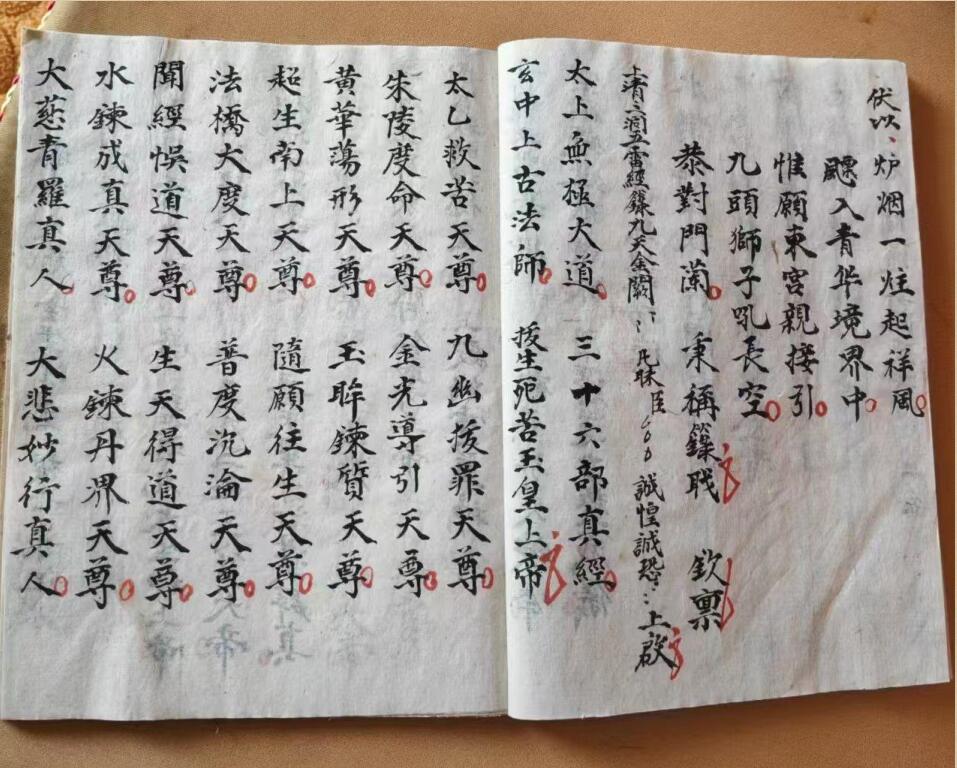 伏以、炉烟一炷起祥風
飄入青华境界中
惟願東宮親接引
九頭獅子吼長空
恭對門蘭 秉稱籙职 欽禀
上清三洞五雷經籙九天金闕 凡昧臣 誠惶誠恐 上啟
太上無極大道 三十六部真經
玄中上古法師 拔生死苦玉皇上帝
太乙救苦天尊 九幽拔罪天尊
朱陵度命天尊 金光導引天尊
黃華蕩形天尊 玉眸鍊質天尊
超生南上天尊 隨願往生天尊
法橋大度天尊 普度沉淪天尊
聞經悞道天尊 生天得道天尊
水鍊成真天尊 火鍊丹界天尊
大慈青羅真人 大悲妙行真人